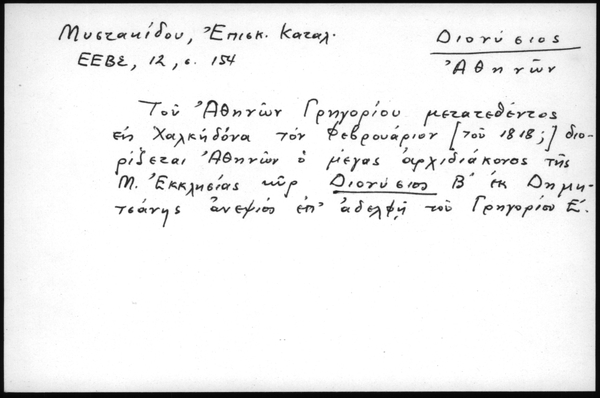 Μυστακίδου, Ἐπισκ. Καταλ.
Διονύσιος
ΕΕΒΣ, 12, σ. 154
Ἀθηνῶν
Τοῦ Ἀθηνῶν Γρηγορίου μετατεθέντος
εἰς Χαλκηδόνα τόν Φεβρουάριον [τοῦ 1818;] διο-
ρίζεται Ἀθηνῶν ὁ μέγας ἀρχιδιάκονος τῆς
Μ. Ἐκκλησίας κῦρ Διονύσιος Β' ἐκ Δημη-
τσάνης ἀνεψιός ἐπ' ἀδελφῇ τοῦ Γρηγορίου Ε'.